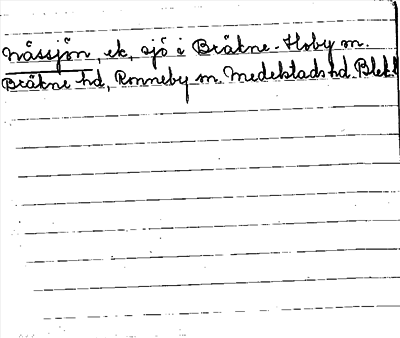 Nässjön, ek, sjö i Bräkne-Hoby sn.
Bräkne hd, Ronneby sn. Medelstads hd. Blek.